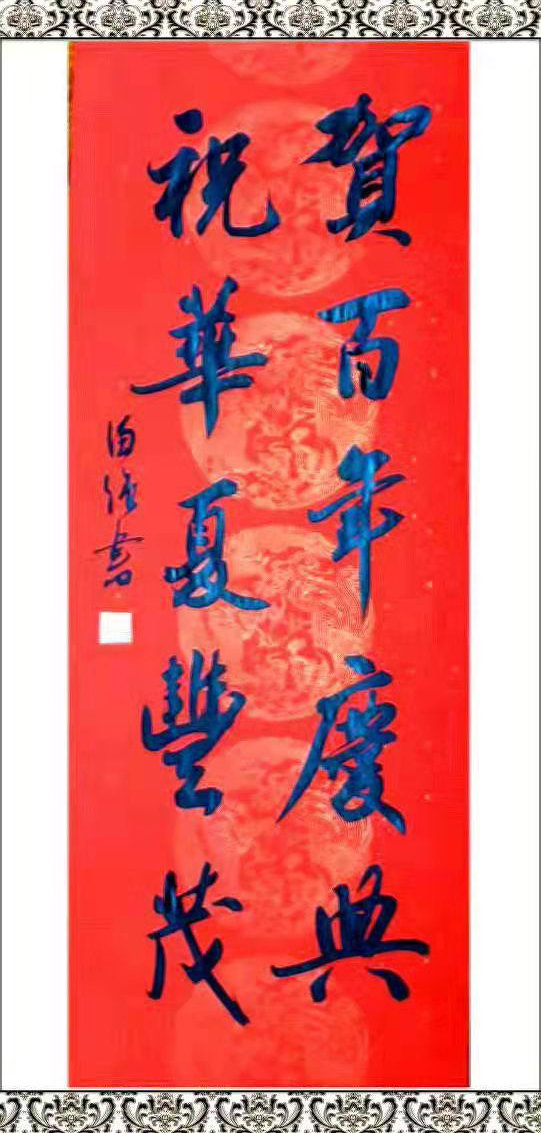 賀百年慶典
祝華夏豐茂